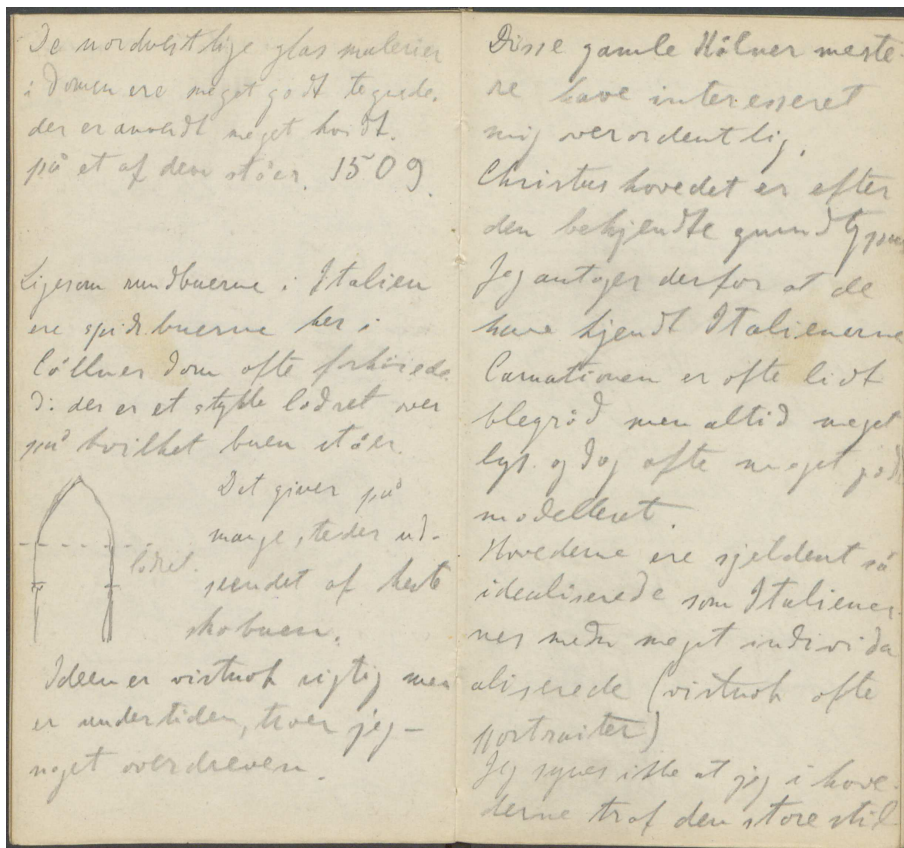 De nordvestlige glasmalerier
i Domen ere meget godt tegnede.
der er anvendt meget hvidt.
på et af dem ståer. 1509.
Ligesom rundbuerne i Italien
ere spidsbuerne her i
Cöllner Dom ofte forhöiede
D: der er et stykke lodret over
på hvilket buen ståer.
Det giver på
mange steder ud-
seendet af heste
skobuen.
lodret.
Ideen er vistnok rigtig men
er undertiden, troer jeg -
noget overdreven.
Disse gamle Kölner meste-
re have interesseret
mig overordentlig.
Christus hovedet er efter
den bekjendte grundtypus
Jeg antager derfor at de
have kjendt Italienerne
Carnationen er ofte lidt
blegröd men altid meget
lys. og dog ofte meget godt
modelleret.
Hovederne ere sjeldent så
idealiserede som Italiener-
nes men meget individu
aliserede (vistnok ofte
portraiter)
Jeg synes ikke at jeg i hove-
derne traf den store stil